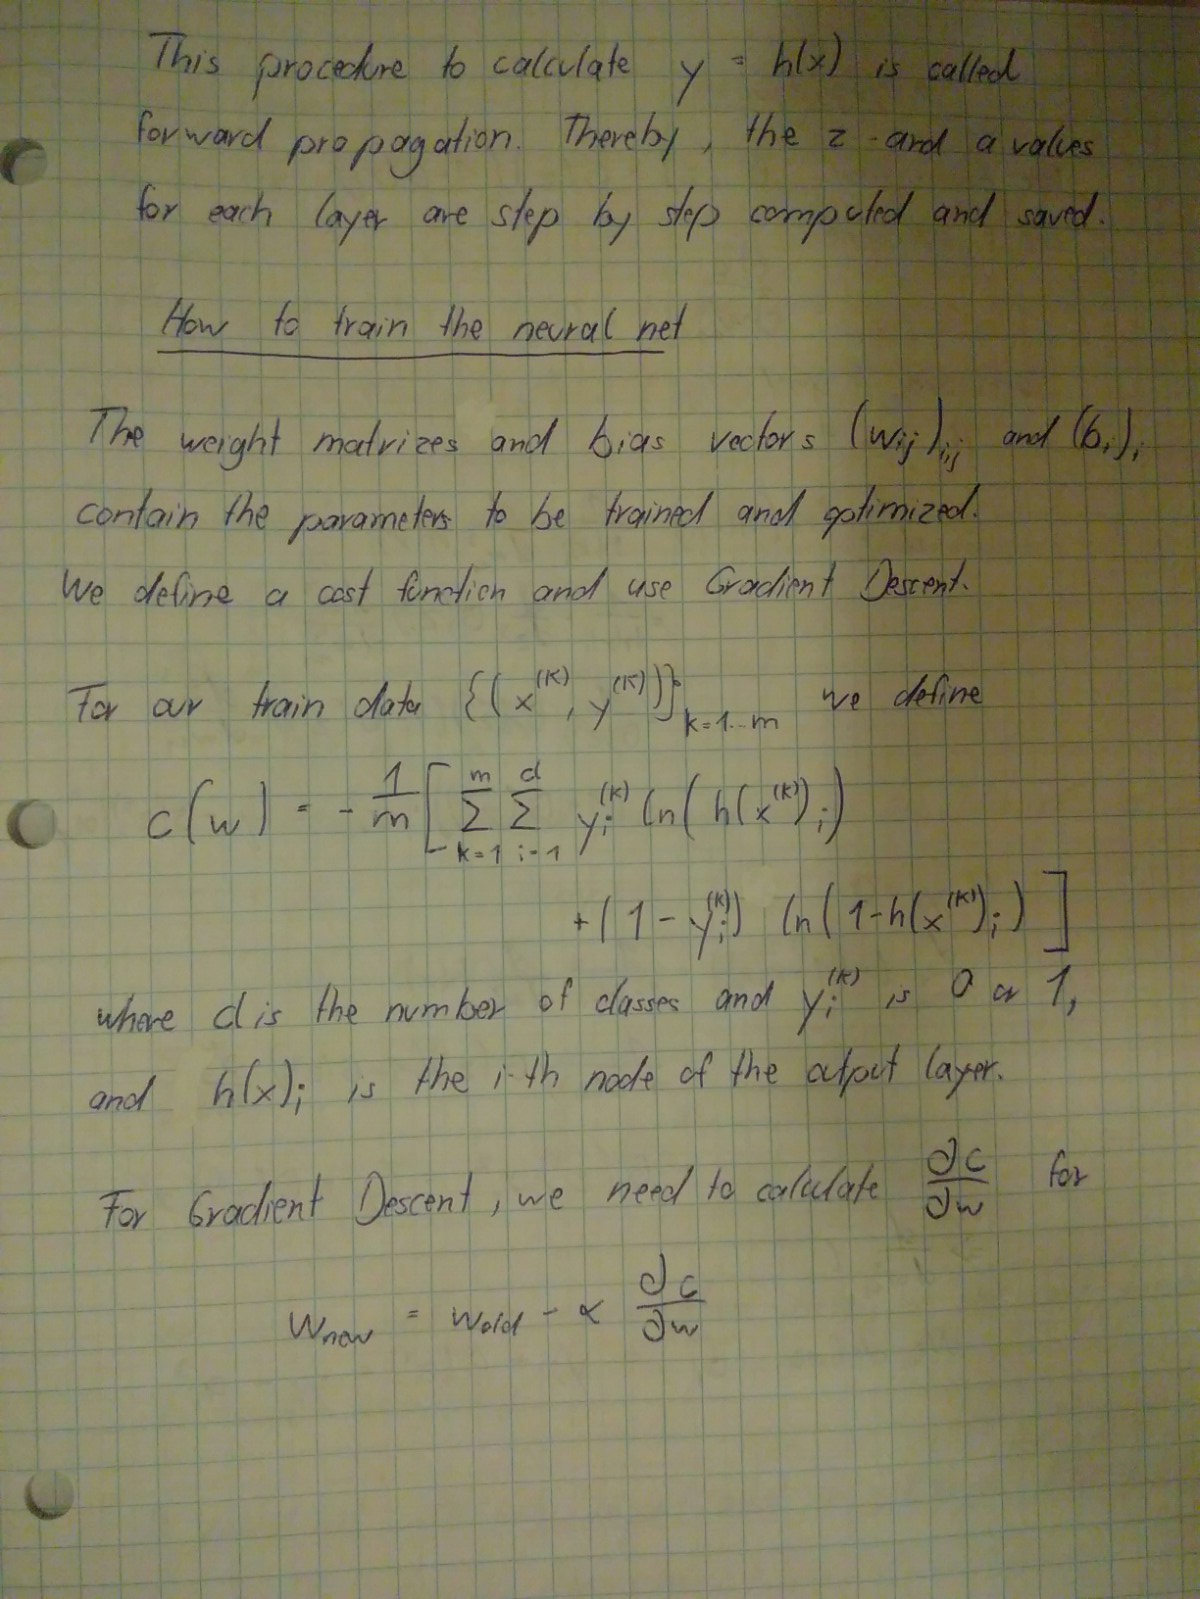 This procedure to calculate y = h(x) is called
forward propagation. Thereby, the z - and a values
for each layer are step by step computed and saved.
How to train the neural net
The weight matrizes and bias vectors (w_ij)_ij and (b_i)_i
contain the parameters to be trained and optimized.
We define a cost function and use Gradient Descent.
For our train data {(x^(k), y^(k))}_k=1...m we define
c(w) = - 1/m [ Σ_{k=1}^{m} Σ_{i=1}^{d} y_i^(k) ln(h(x^(k))_i)
+ (1 - y_i^(k)) ln(1-h(x^(k))_i) ]
where d is the number of classes and y_i^(k) is 0 or 1,
and h(x)_i is the i-th node of the output layer.
For Gradient Descent, we need to calculate ∂c/∂w for
w_new = w_old - α ∂c/∂w